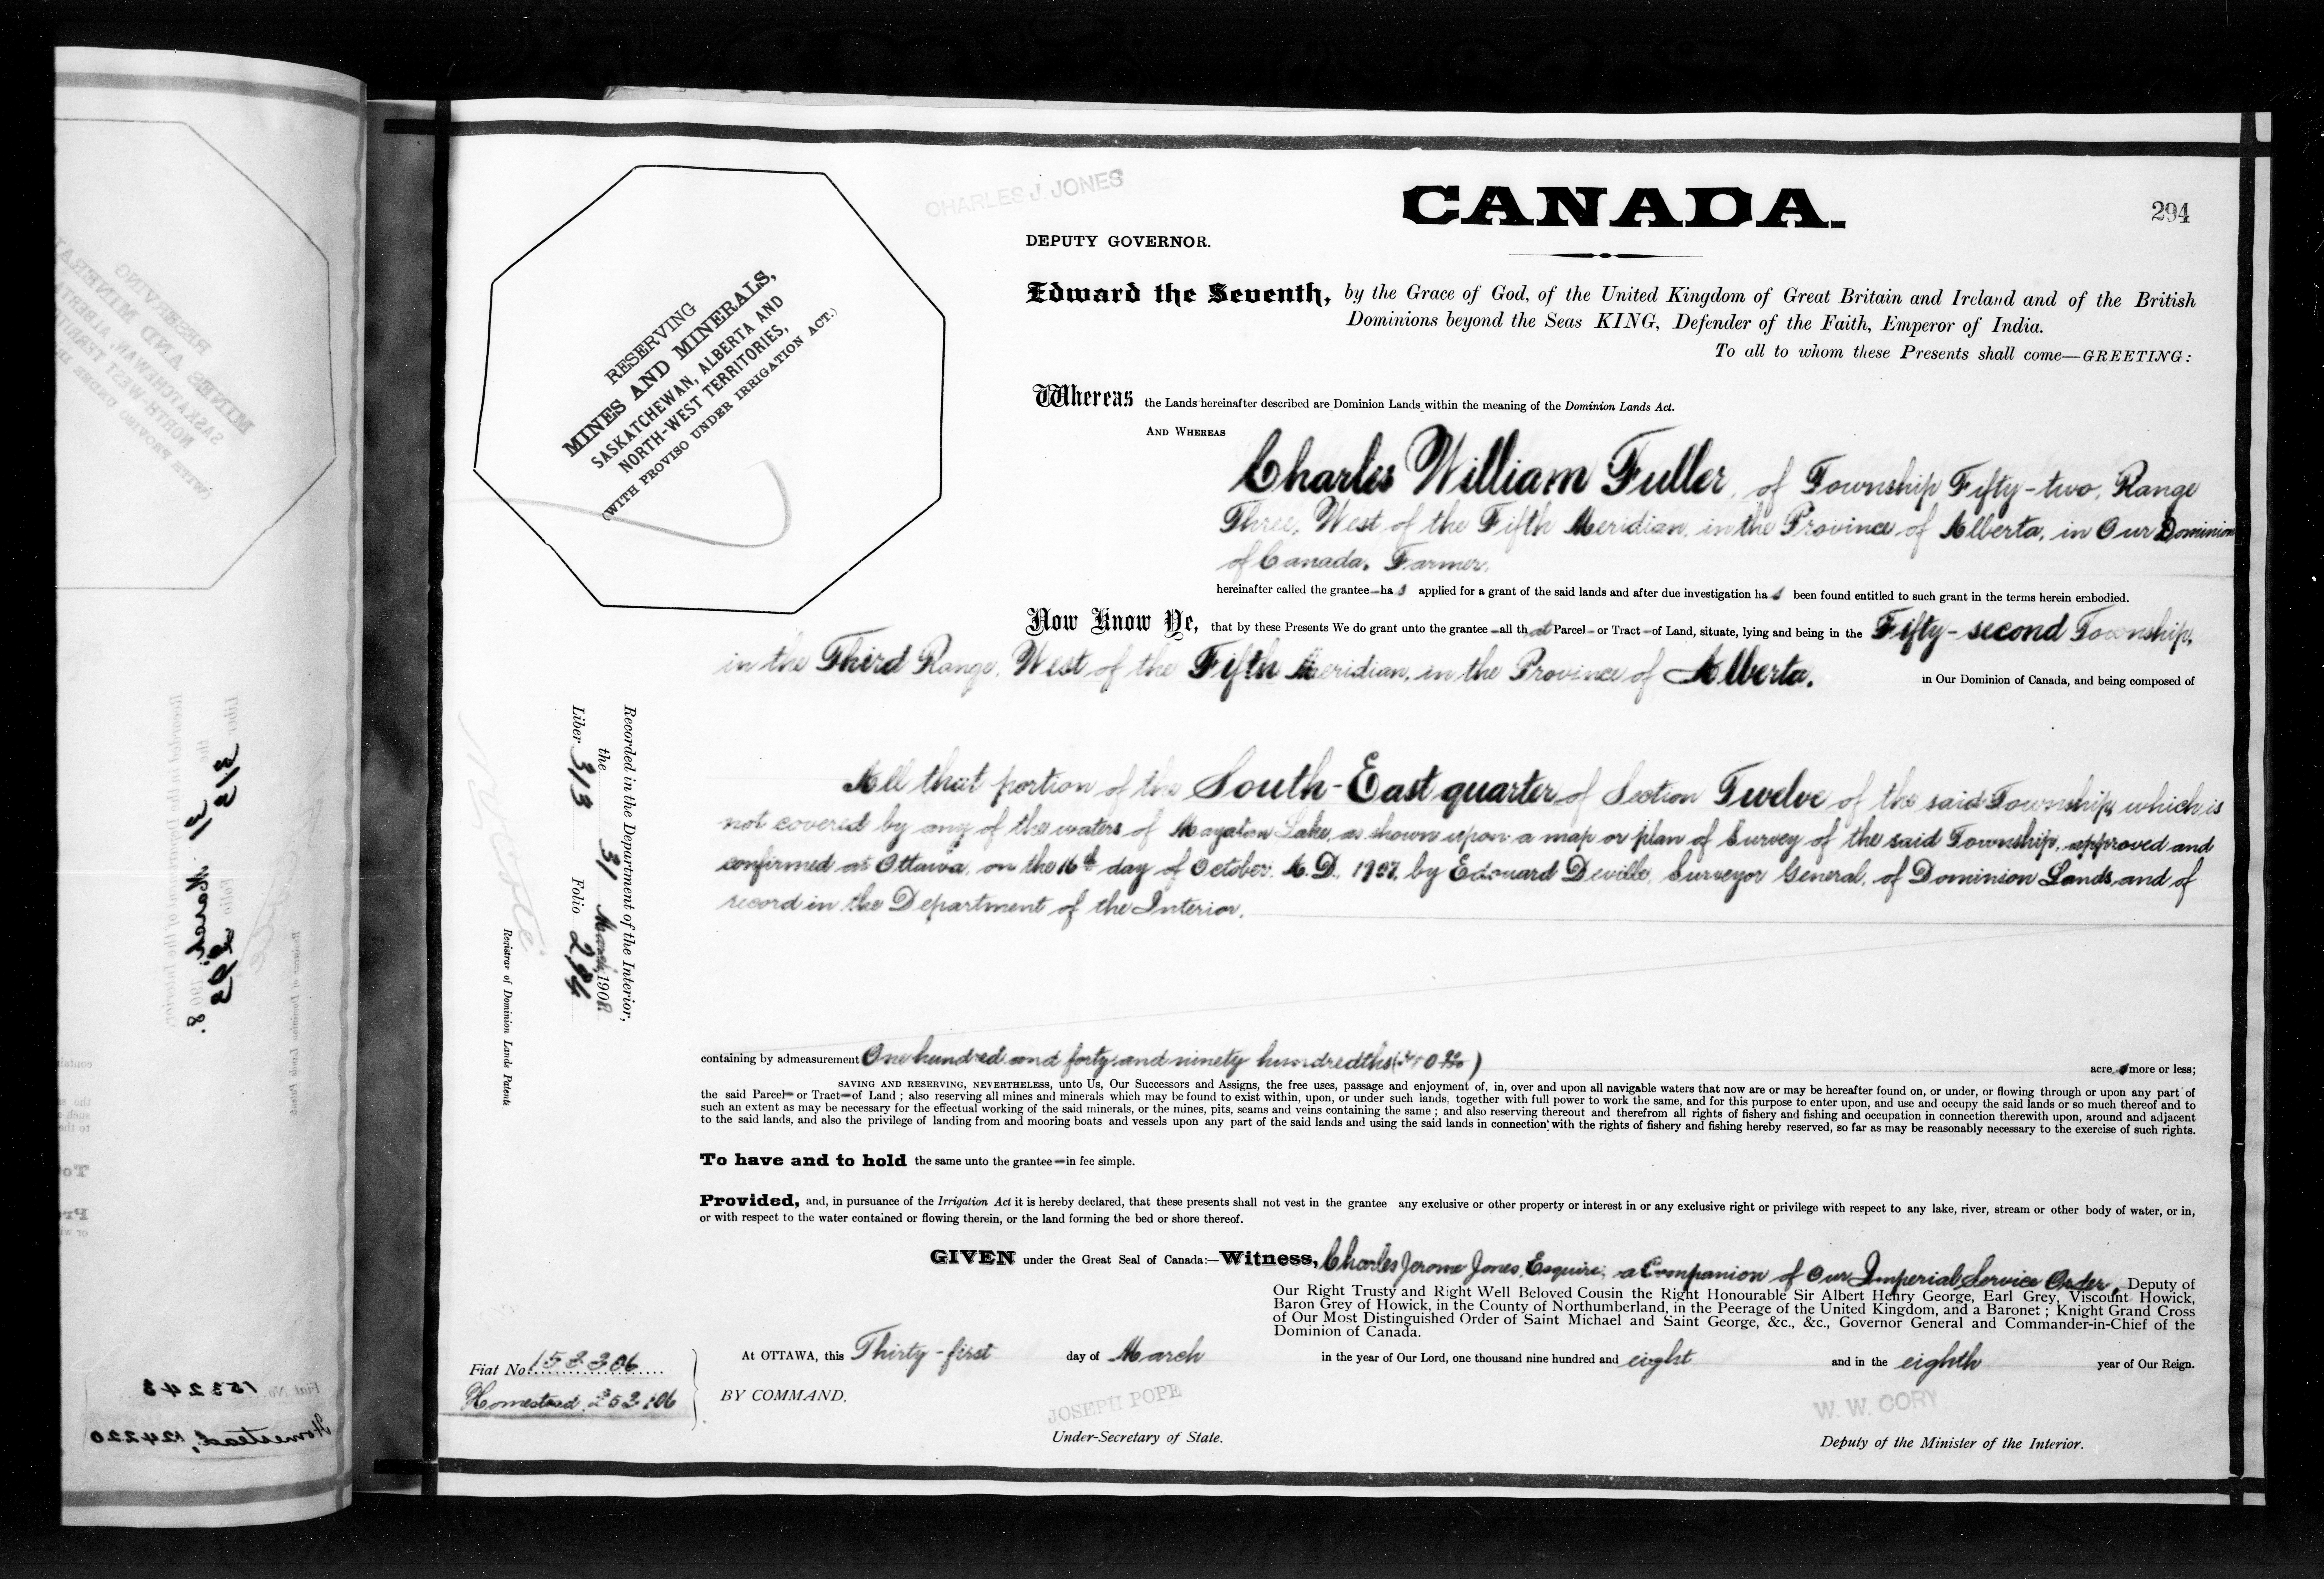 CHARLES J. JONES
CANADA.
294
DEPUTY GOVERNOR.
RESERVING
MINES AND MINERALS,
SASKATCHEWAN, ALBERTA AND
NORTH-WEST TERRITORIES,
(WITH PROVISO UNDER IRRIGATION ACT.)
Edward the Seventh, by the Grace of God, of the United Kingdom of Great Britain and Ireland and of the British
Dominions beyond the Seas KING, Defender of the Faith, Emperor of India.
To all to whom these Presents shall come—GREETING:
Whereas the Lands hereinafter described are Dominion Lands within the meaning of the Dominion Lands Act.
AND WHEREAS
Charles William Fuller, of Township Fifty-two, Range
Three, West of the Fifth Meridian, in the Province of Alberta, in Our Dominion
of Canada, Farmer,
hereinafter called the grantee—has applied for a grant of the said lands and after due investigation has been found entitled to such grant in the terms herein embodied.
Now Know Ye, that by these Presents We do grant unto the grantee—all that Parcel—or Tract—of Land, situate, lying and being in the Fifty-second Township,
in the Third Range, West of the Fifth Meridian, in the Province of Alberta. in Our Dominion of Canada, and being composed of
All that portion of the South-East quarter of Section Twelve of the said Township, which is
not covered by any of the waters of Mayatan Lake, as shown upon a map or plan of Survey of the said Township, approved and
confirmed at Ottawa, on the 16th day of October, A.D. 1907, by Edouard Deville, Surveyor General, of Dominion Lands, and of
record in the Department of the Interior.
Recorded in the Department of the Interior,
the 31 March, 1908
Liber 313 Folio 294
Registrar of Dominion Lands Patents
containing by admeasurement One hundred and forty and ninety hundredths acres more or less;
SAVING AND RESERVING, NEVERTHELESS, unto Us, Our Successors and Assigns, the free uses, passage and enjoyment of, in, over and upon all navigable waters that now are or may be hereafter found on, or under, or flowing through or upon any part of
the said Parcel—or Tract—of Land ; also reserving all mines and minerals which may be found to exist within, upon, or under such lands, together with full power to work the same, and for this purpose to enter upon, and use and occupy the said lands or so much thereof and to
such an extent as may be necessary for the effectual working of the said minerals, or the mines, pits, seams and veins containing the same ; and also reserving thereout and therefrom all rights of fishery and fishing and occupation in connection therewith upon, around and adjacent
to the said lands, and also the privilege of landing from and mooring boats and vessels upon any part of the said lands and using the said lands in connection with the rights of fishery and fishing hereby reserved, so far as may be reasonably necessary to the exercise of such rights.
To have and to hold the same unto the grantee—in fee simple.
Provided, and, in pursuance of the Irrigation Act it is hereby declared, that these presents shall not vest in the grantee any exclusive or other property or interest in or any exclusive right or privilege with respect to any lake, river, stream or other body of water, or in,
or with respect to the water contained or flowing therein, or the land forming the bed or shore thereof.
GIVEN under the Great Seal of Canada:—Witness, Charles Jerome Jones, Esquire, a Companion of Our Imperial Service Order, Deputy of
Our Right Trusty and Right Well Beloved Cousin the Right Honourable Sir Albert Henry George, Earl Grey, Viscount Howick,
Baron Grey of Howick, in the County of Northumberland, in the Peerage of the United Kingdom, and a Baronet ; Knight Grand Cross
of Our Most Distinguished Order of Saint Michael and Saint George, &c., &c., Governor General and Commander-in-Chief of the
Dominion of Canada.
At OTTAWA, this Thirty-first day of March in the year of Our Lord, one thousand nine hundred and eight and in the eighth year of Our Reign.
Fiat No. 153306
Homestead,
BY COMMAND,
JOSEPH POPE
Under-Secretary of State.
W. W. CORY
Deputy of the Minister of the Interior.